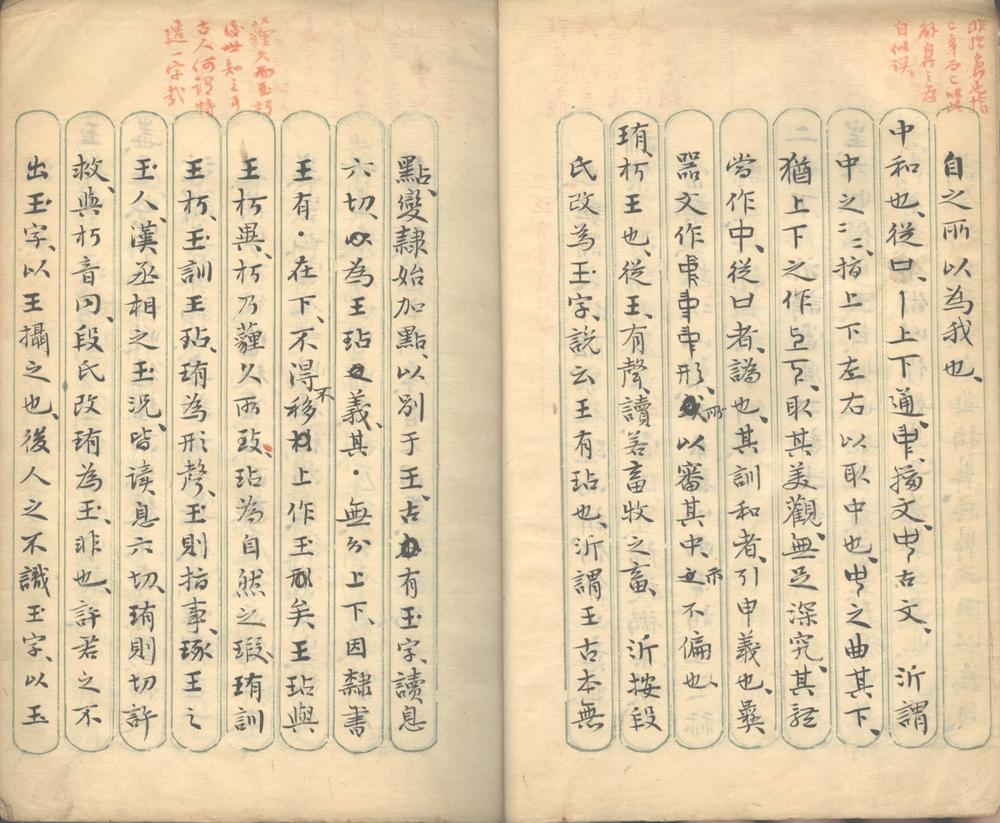 自之所以為我也、
中和也、從口、丨上下通、𠁩、籀文、𠁧古文、沂謂
中之二二、指上下左右以取中也、𠁧之曲其下、
猶上下之作𠄞𠄟、取其美觀、無足深究、其
當作中、從口者、譌也、其訓和者、引申義也、彝
器文作形、所以審其中、示不偏也、
珛、朽玉也、從王、有聲、讀若畜牧之畜、沂按段
氏改為玉字、說云王有玷也、沂謂王古本無
點、變隸始加點、以別于王、古有玉字、讀息
六切、為王玷義、其・無分上下、因隸書
王有・在下、不得不移上作玉形矣、王玷與
王朽異、朽乃薶久所致、玷為自然之瑕、珛訓
王朽、玉訓王玷、珛為形聲、玉則指事、琢王之
玉人、漢丞相之玉況、皆讀息六切、珛則切許
救、與朽音同、段氏改珛為玉、非也、許若之不
出玉字、以王攝之也、後人之不識玉字、以玉
自似誤
薶久而玉朽
後世知之耳
古人何得特
造一字哉